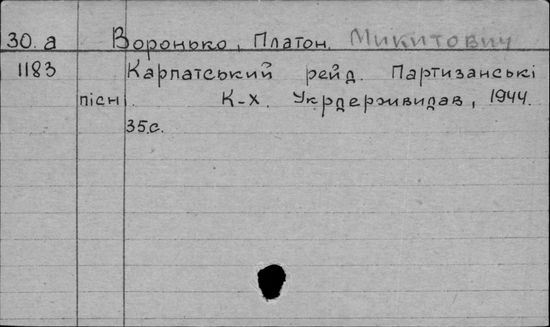 30.а Воронько, Платон. Микитович
1183 Карпатський рейд. Партизанські
пісні. К-Х. Укрдержвидав, 1944.
35с.